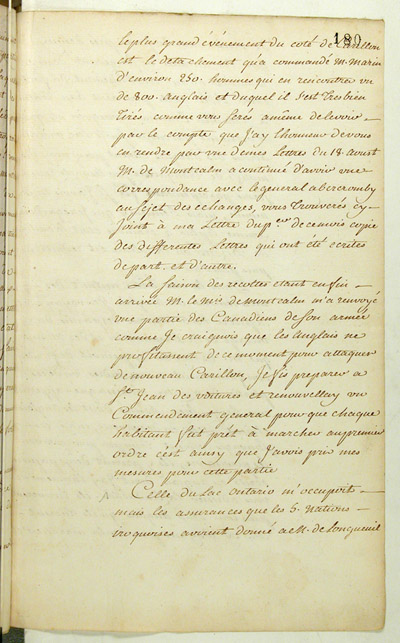 180
le plus grand événement du coté de Carillon
est le detachement qu'a commandé M. Marin
d'environ 250. hommes qui en rencontra un
de 800. anglais et duquel il s'est tres bien
tirés comme vous serés a même de le voir
par le compte que J'ay l'honneur de vous
en rendre par une de mes Lettres du 18. aoust
M. de Montcalm a continué d'avoir une
correspondance avec le general abercromby
au sujet des echanges, vous trouverés cy
Joint à ma Lettre du p.er de ce mois copie
des differentes Lettres qui ont été ecrites
de part et d'autre.
La saison des recoltes etant enfin
arrivée M. le M.is de Montcalm m'a renvoyé
une partie des Canadiens de son armée
comme Je craignois que les anglais ne
profitassent de ce moment pour attaquer
de nouveau Carillon, Je fis preparer a
S.t Jean des voitures et renouvellay un
Commendement general pour que chaque
habitant fut prêt à marcher au premier
ordre c'est ainsy que J'avois pris mes
mesures pour cette partie
Celle du Lac ontario m'occupoit
mais les assurances que les 5. nations
iroquoises avoient donné a M. de Longueuil